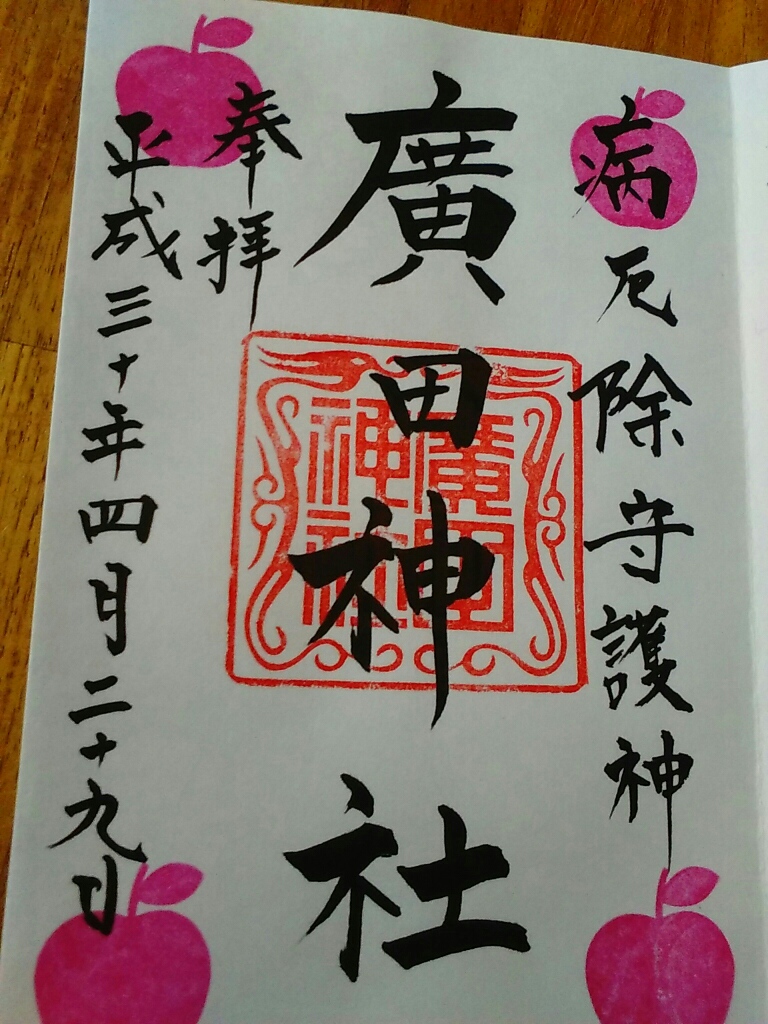 病厄除守護神
廣田神社
廣田
神社
奉拝
平成三十年四月二十九日